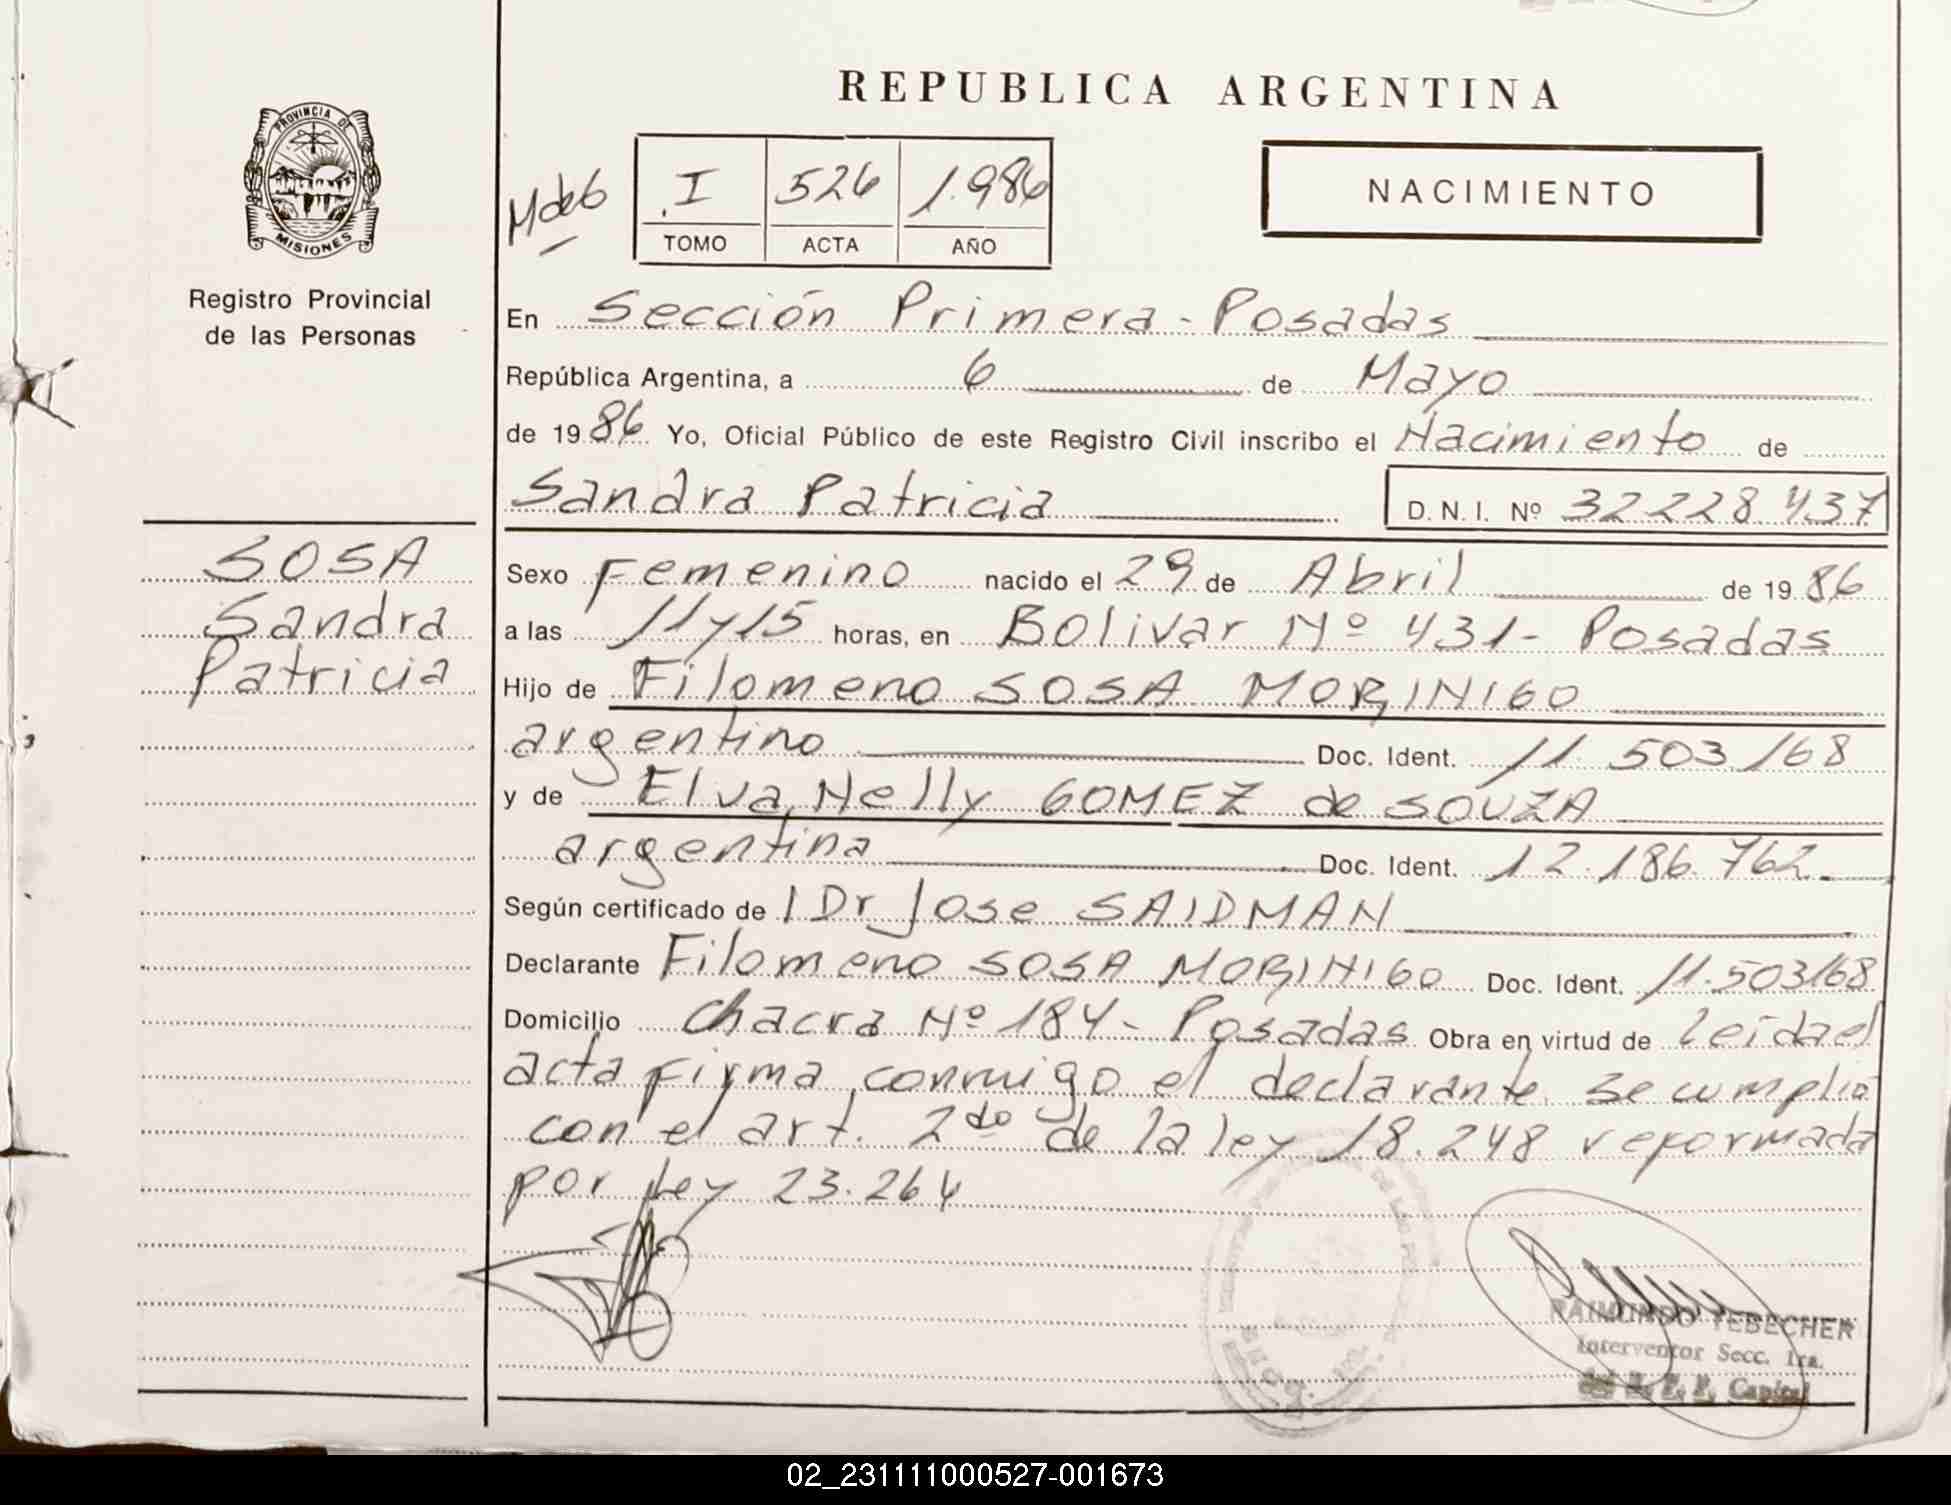 REPUBLICA ARGENTINA
PROVINCIA DE
MISIONES
Registro Provincial
de las Personas
I 526 1.986
TOMO ACTA AÑO
NACIMIENTO
En Sección Primera - Posadas
República Argentina, a 6 de Mayo
de 1986 Yo, Oficial Público de este Registro Civil inscribo el Nacimiento de
Sandra Patricia D.N.I. Nº 32228437
SOSA
Sandra
Patricia
Sexo Femenino nacido el 29 de Abril de 1986
a las 11 y 15 horas, en Bolivar Nº 431- Posadas
Hijo de Filomeno SOSA MORINIGO
argentino Doc. Ident. 11.503168
y de Elva Nelly GOMEZ de SOUZA
argentina Doc. Ident. 12.186.762.
Según certificado de Dr Jose SAIDMAN
Declarante Filomeno SOSA MORINIGO Doc. Ident. 11.503168
Domicilio Chacra Nº 184- Posadas Obra en virtud de leida el
acta firma conmigo el declarante. se cumplió
con el art. 2do de la ley 18.248 reformada
por Ley 23.264
RAIMUNDO YEBECHER
Interventor Secc. 1ra.
Capital
02_231111000527-001673